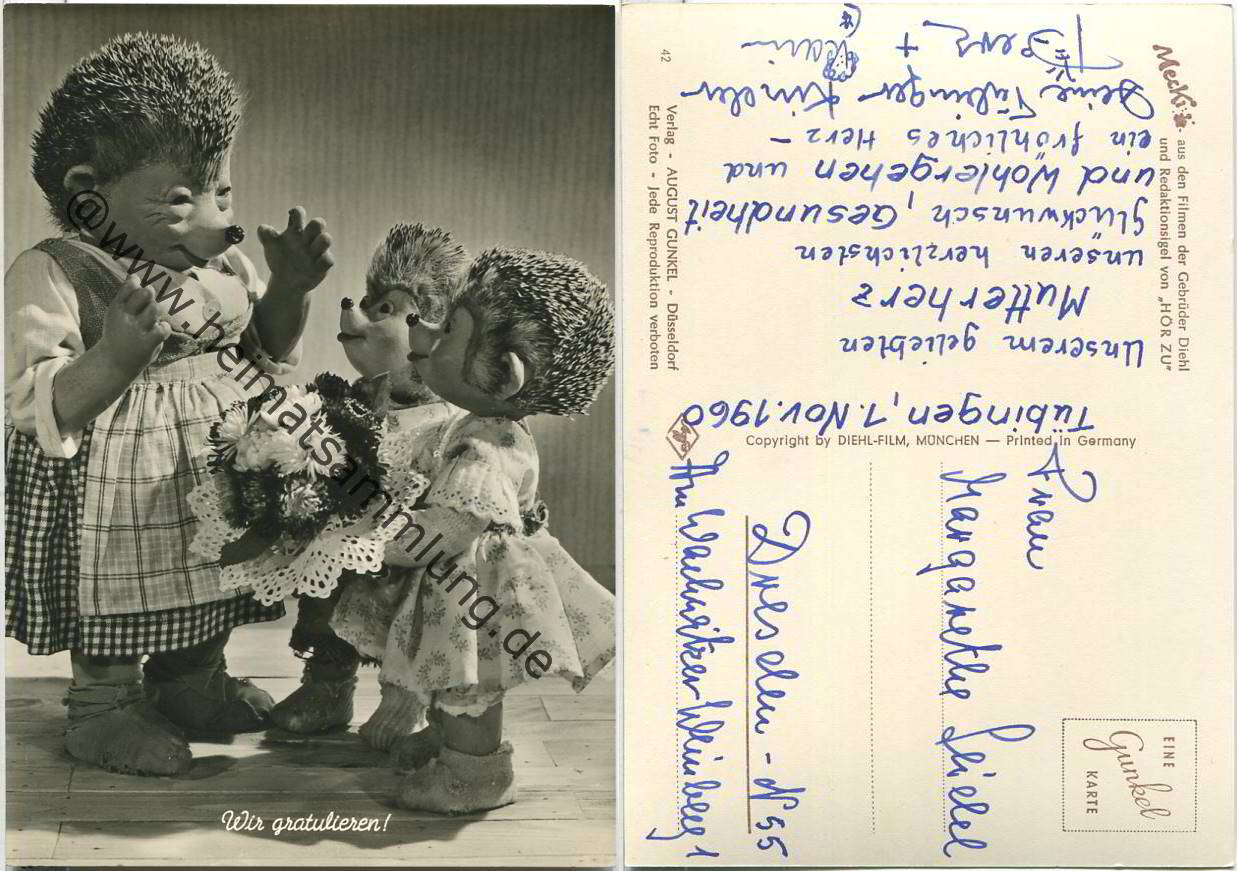 Wir gratulieren!
@www.heimatsammlung.de
Mecki
aus den Filmen der Gebrüder Diehl
und Redaktionsigel von „HÖR ZU"
42
Verlag - AUGUST GUNKEL - Düsseldorf
Echt Foto - Jede Reproduktion verboten
Copyright by DIEHL-FILM, MÜNCHEN — Printed in Germany
Agfa
EINE
Gunkel
KARTE
Tübingen, 7. Nov. 1960
Unserem geliebten
Mutterherz
unseren herzlichsten
Glückwunsch, Gesundheit
und Wohlergehen und
ein fröhliches Herz –
Deine Tübinger Kinder
+
Frau
Margarethe Seidel
Dresden - N 55
Am Wachwitzer Weinberg 1